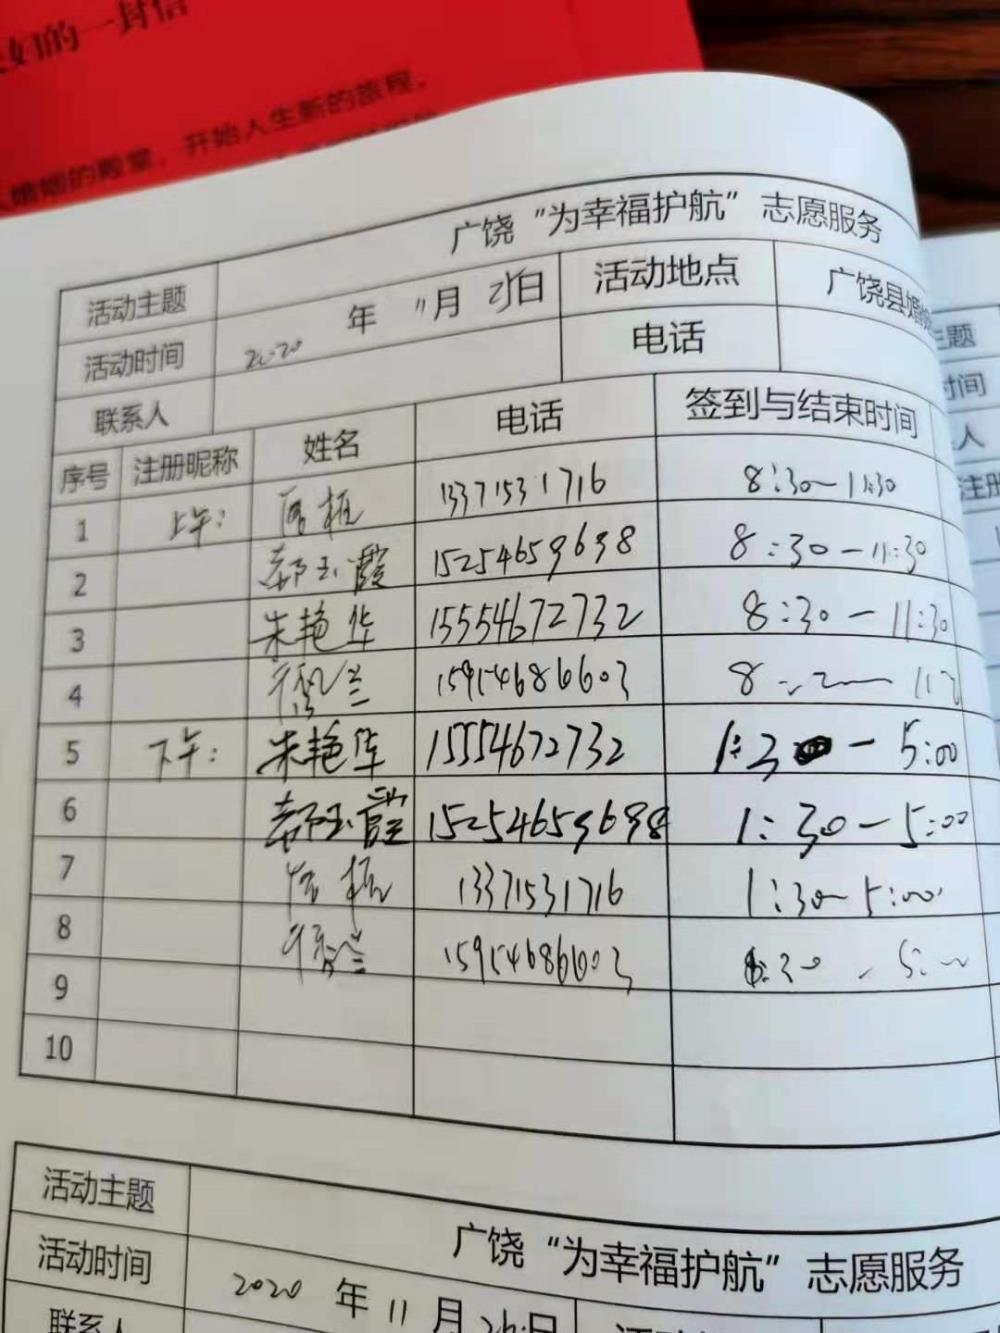 的一封信
婚姻的殿堂，开始人生新的旅程。
活动主题 广饶“为幸福护航”志愿服务
活动时间 2020 年 11月 25日 活动地点 广饶县婚
联系人 电话
序号 注册昵称 姓名 电话 签到与结束时间
1 上午： 13371531716 8:30-11:30
2 郝玉霞 15254659698 8:30-11:30
3 朱艳华 15554672732 8:30-11:30
4 15954686603 8
5 下午： 朱艳华 15554672732 1:30-5:00
6 郝玉霞 15254659698 1:30-5:00
7 13371531716 1:30-5:00
8 15954686603 1:30 - 5:00
9
10
主题
时间
人
注册
活动主题 广饶“为幸福护航”志愿服务
活动时间 2020 年 11 月 26日 活动地点
联系人